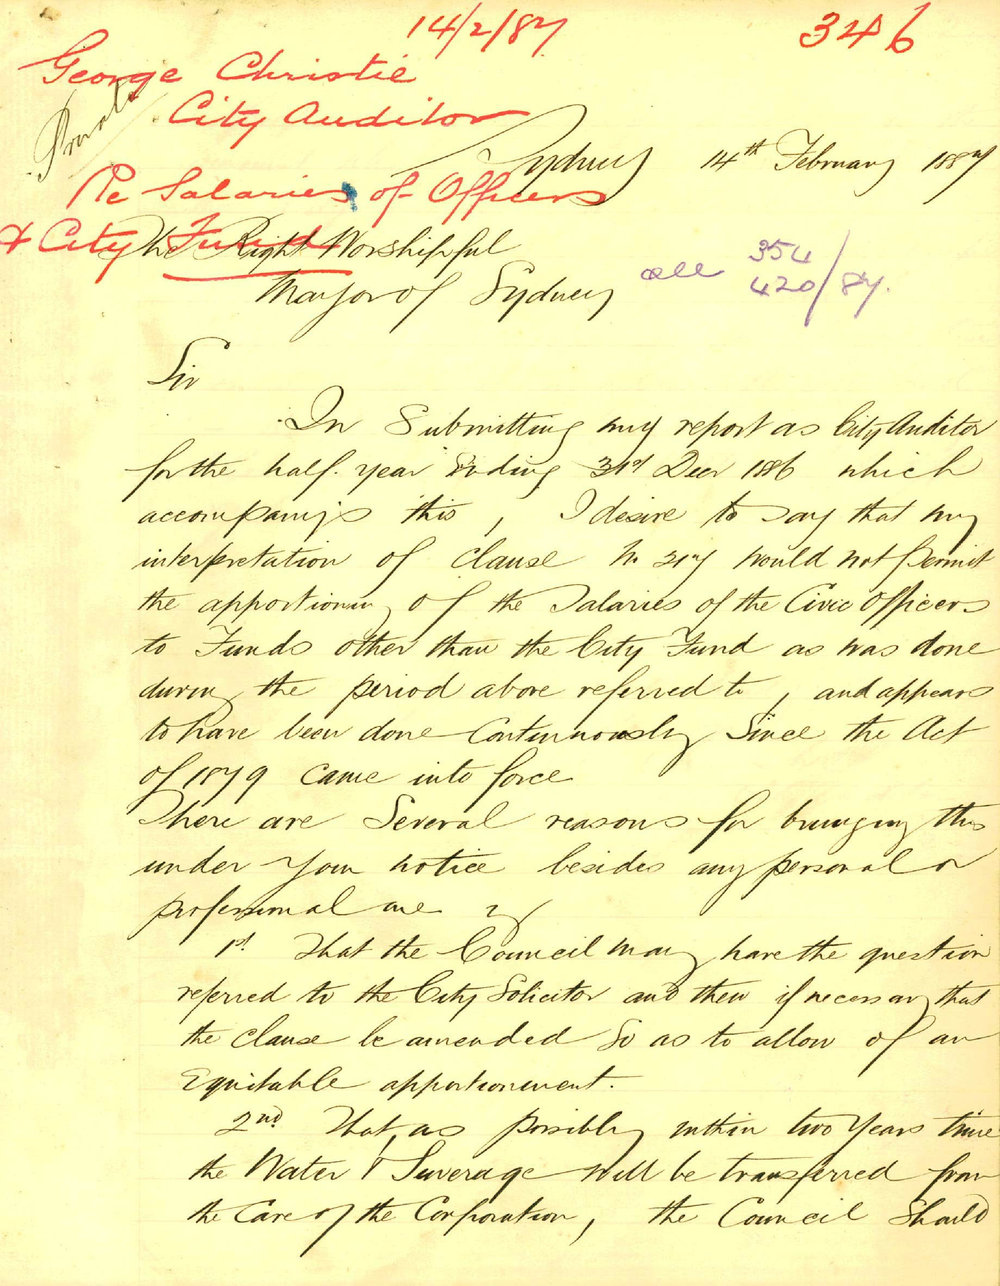 14/2/87
346
George Christie
City Auditor
Private
Re Salaries of Officers
& City Fund
Sydney 14th February 1887
The Right Worshipful
Mayor of Sydney
see 354
420/87.
Sir
In Submitting my report as City Auditor
for the half-year Ending 31st Decr 1886 which
accompanys this, I desire to say that my
interpretation of Clause No would not permit
the apportioning of the Salaries of the Civic Officers
to Funds other than the City Fund as was done
during the period above referred to, and appears
to have been done Continuously Since the Act
of 1879 came into force
There are Several reasons for bringing this
under your notice besides any personal or
professional one
1st That the Council may have the question
referred to the City Solicitor and then if necessary that
the clause be amended So as to allow of an
Equitable apportionment.
2nd That, as possibly within two years time
the Water & Sewerage will be transferred from
the Care of the Corporation, the Council Should